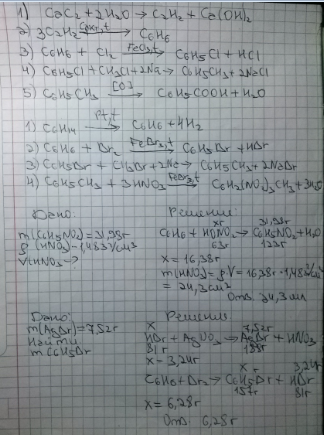 1) CaC2 + 2H2O → C2H2 + Ca(OH)2
2) 3C2H2 Cакт,t → C6H6
3) C6H6 + Cl2 FeCl3,t → C6H5Cl + HCl
4) C6H5Cl + CH3Cl + 2Na → C6H5CH3 + 2NaCl
5) C6H5CH3 [O] → C6H5COOH + H2O
1) C6H14 Pt,t → C6H6 + 4H2
2) C6H6 + Br2 FeBr3,t → C6H5Br + HBr
3) C6H5Br + CH3Br + 2Na → C6H5CH3 + 2NaBr
4) C6H5CH3 + 3HNO3 → C6H2(NO2)3CH3 + 3H2O
Дано:
m(C6H5NO2) = 31,98г
ρ(HNO3) = 1,483г/см³
V(HNO3) - ?
Решение:
xг 31,98г
C6H6 + HONO2 → C6H5NO2 + H2O
63г 123г
x = 16,38г
m(HNO3) = ρV = 16,38г · 1,48г/см³
= 24,3см³
Отв. 24,3 мл
Дано:
m(AgBr) = 7,52г
Найти
m C6H5Br
Решение
x 7,52г
HBr + AgNO3 → AgBr + HNO3
81г 188г
x = 3,24г
x г 3,24г
C6H6 + Br2 → C6H5Br + HBr
157г 81г
x = 6,28г
Отв. 6,28г